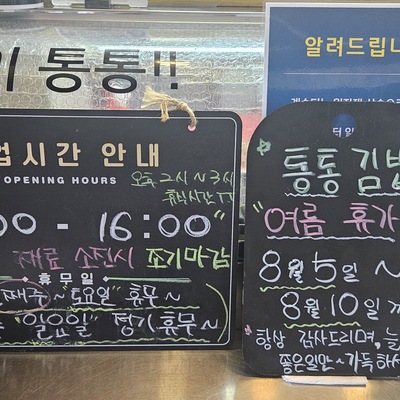 통통!!
알려드립니
업시간 안내
OPENING HOURS
오후 2시~3시
휴식시간
00 - 16:00"
재료 소진시 조기마감
휴무일
째주 ~ 토요일" 휴무~
"일요일" 정기휴무~
통통김밥
"여름 휴가
8월 5일 ~
8월 10일 까
항상 감사드리며, 늘
좋은일만~ 가득하세